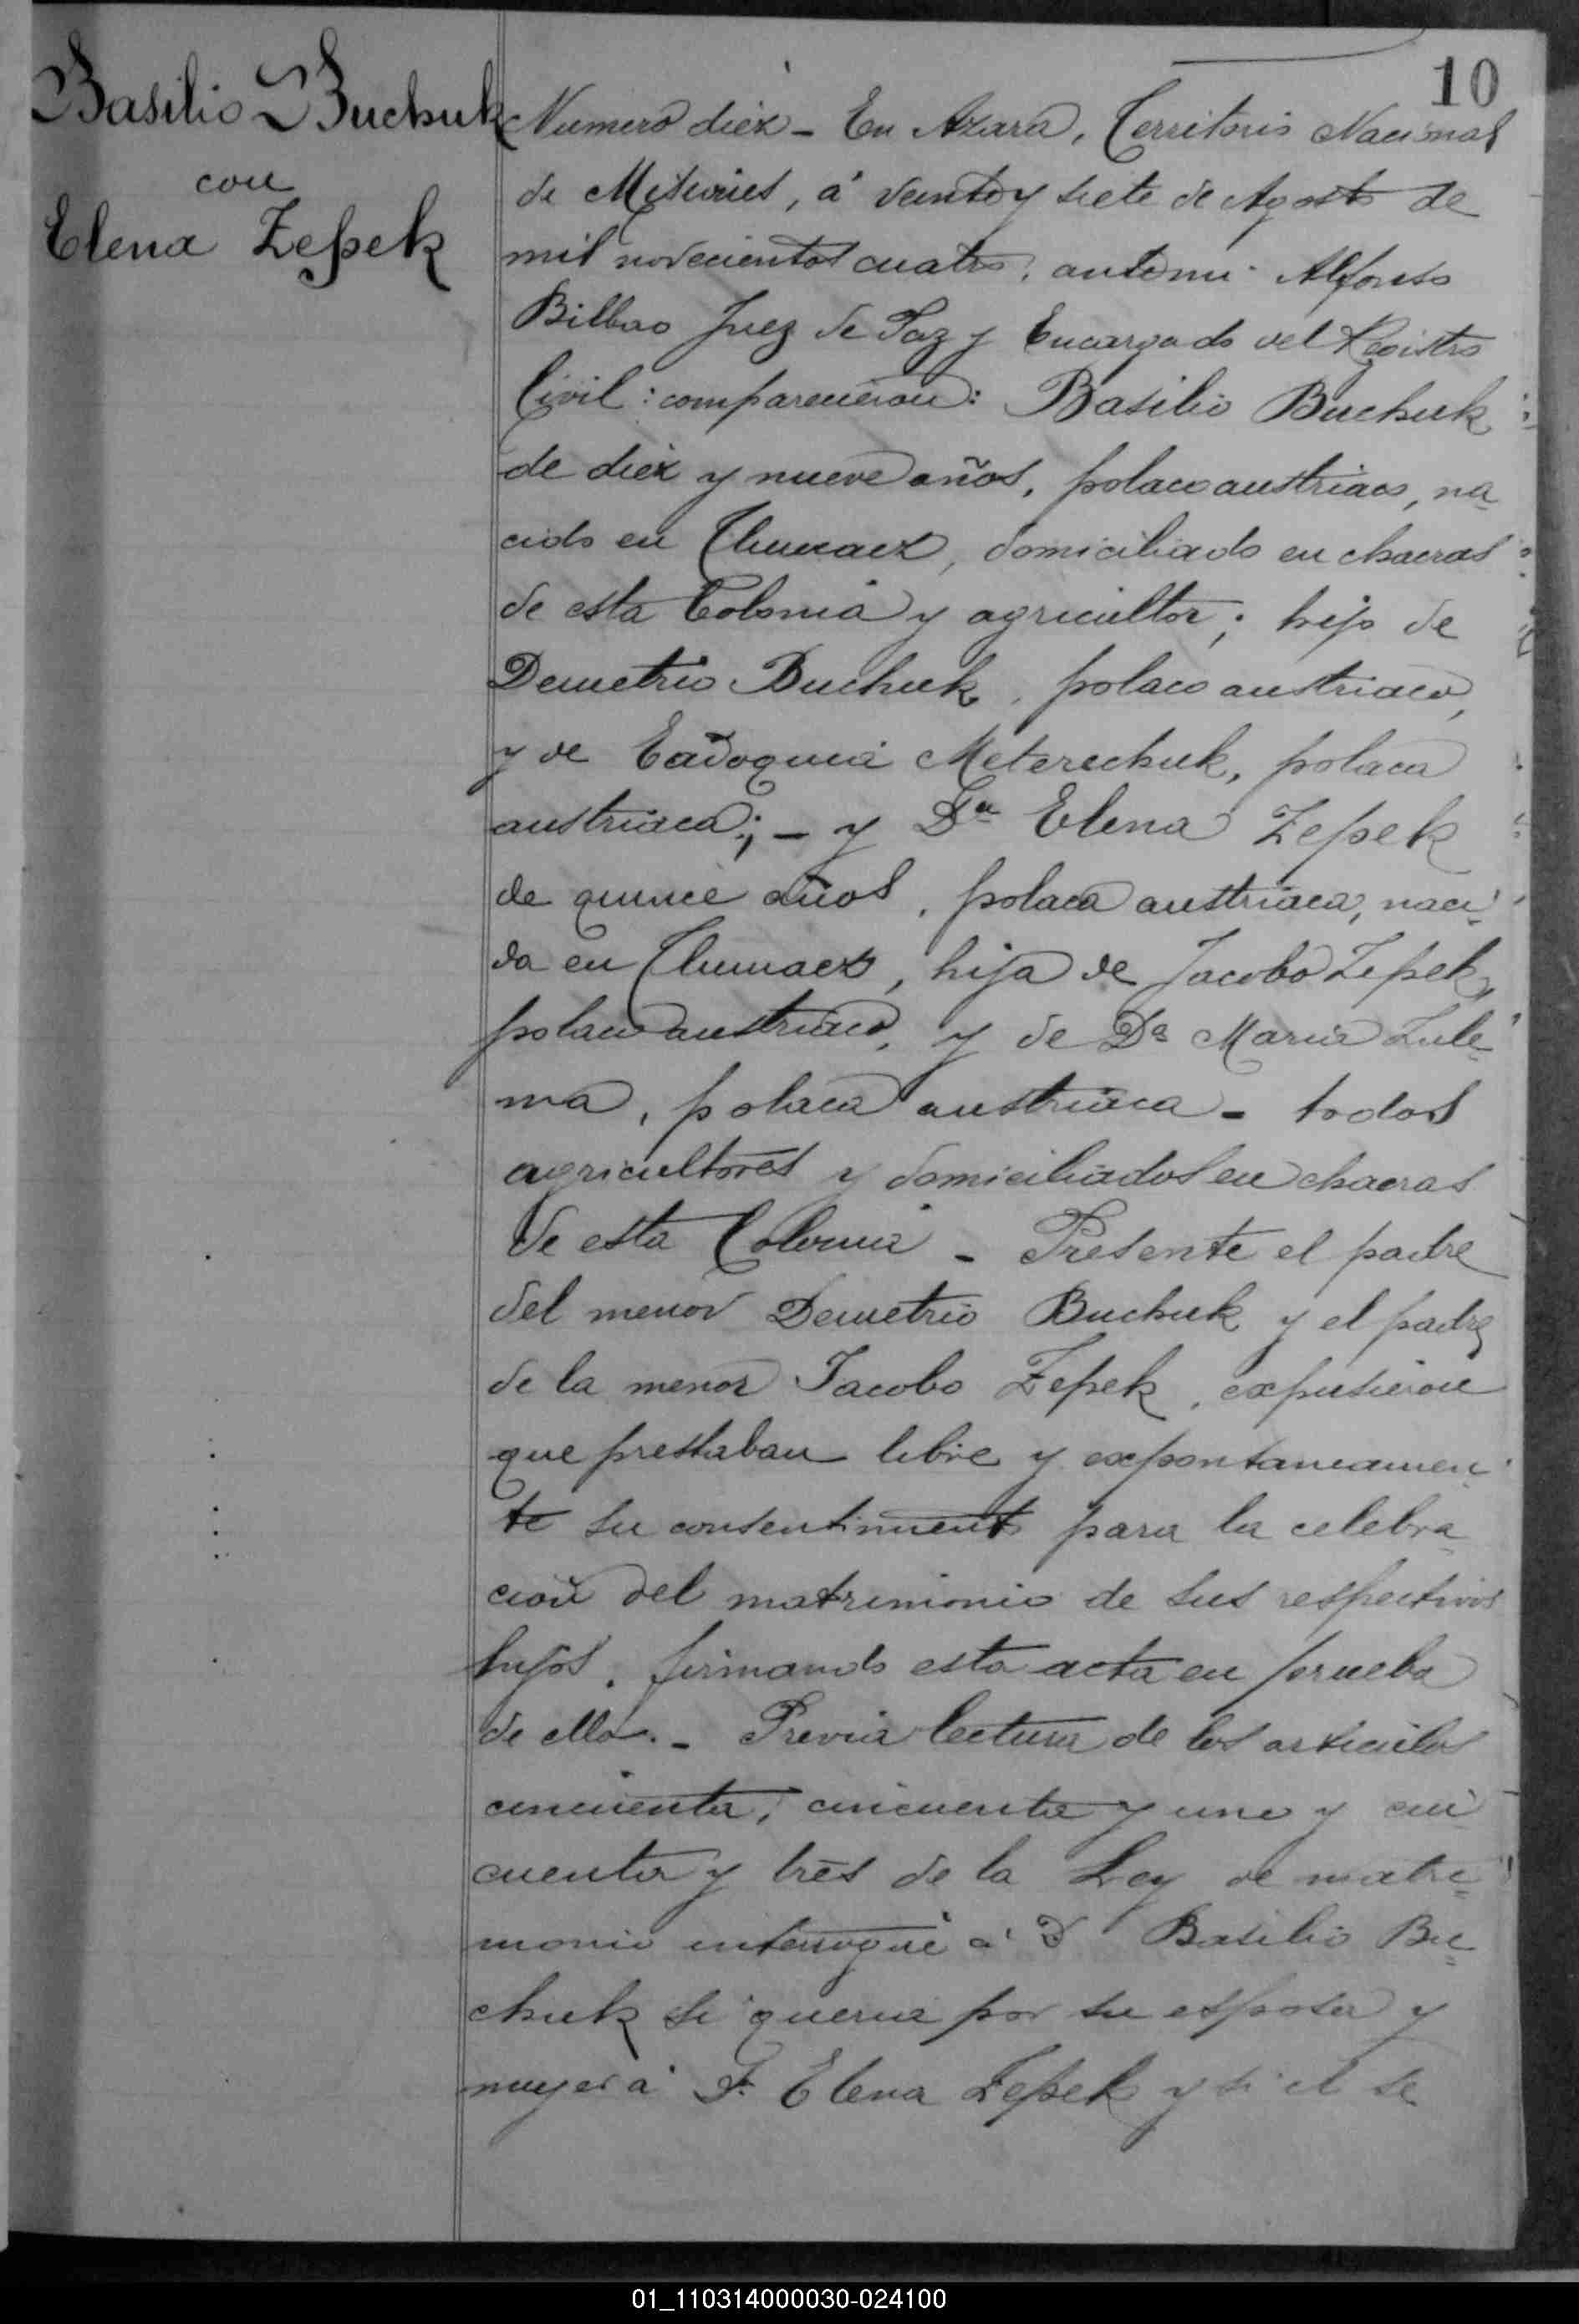 10
Basilio Buchuk
con
Elena Zepek
Numero diez - En Azara, Territorio Nacional
de Misiones, á veinte y siete de Agosto de
mil novecientos cuatro, ante mi Alfonso
Bilbao Juez de Paz y Encargado del Registro
Civil: comparecieron: Basilio Buchuk
de diez y nueve años, polaco austriaco, na-
cido en Tlumacz, domiciliado en chacras
de esta Colonia y agricultor; hijo de
Demetrio Buchuk, polaco austriaco,
y de Eadoquia Meterechuk, polaca
austriaca; - y Da Elena Zepek
de quince años, polaca austriaca, naci-
da en Tlumacz, hija de Jacobo Zepek,
polaco austriaco, y de Da Maria Zule-
ma, polaca austriaca - todos
agricultores y domiciliados en chacras
de esta Colonia - Presente el padre
del menor Demetrio Buchuk y el padre
de la menor Jacobo Zepek, expusieron
que prestaban libre y expontaneamen-
te su consentimiento para la celebra-
ción del matrimonio de sus respectivos
hijos, firmando esta acta en prueba
de ello. - Previa lectura de los articulos
cincuenta, cincuenta y uno y cin-
cuenta y tres de la Ley de matri-
monio interrogué á D Basilio Bu-
chuk si queria por su esposa y
muger á Da Elena Zepek y si el se
01_110314000030-024100